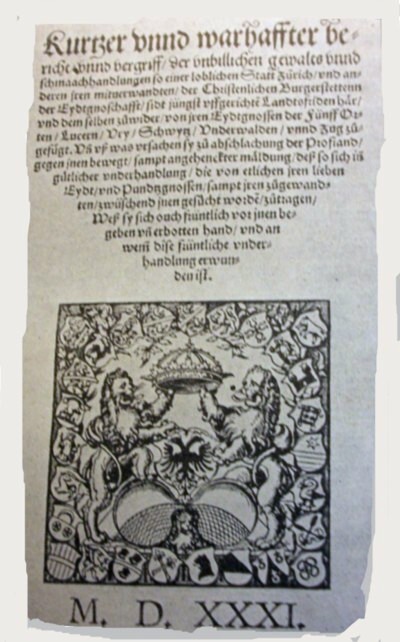 Kurtzer vnnd warhaffter be-
richt vnnd vergriff / der vnbillichen gewalts vnnd
schmaachhandlungen so einer loblichen Statt Zürich / vnd an-
deren jren mituerwandten / der Christenlichen Burgerstettenn
der Eydtgnoschafft / sidt jüngst vffgerichte Landtsfriden här /
vnd dem selben zůwider / von jren Eydtgnossen der Fünff Or-
ten / Lucern / Vry / Schwytz / Vnderwalden / vnnd Zug zů-
gefügt. Vñ vß was vrsachen sy zů abschlachung der Profiand /
gegen jnen bewegt / sampt angehenckter mäldung / deß so sich iñ
gütlicher vnderhandlung / die von etlichen jren lieben
Eydt / vnd Pundtgnossen / sampt jren zůgewand-
ten / zwüschend jnen gesůcht wordẽ / zůtragen /
Weß sy sich ouch früntlich vor jnen be-
geben vñ erbotten hand / vnd an
wem dise früntliche vnder-
handlung erwun-
den ist.
M. D. XXXI.